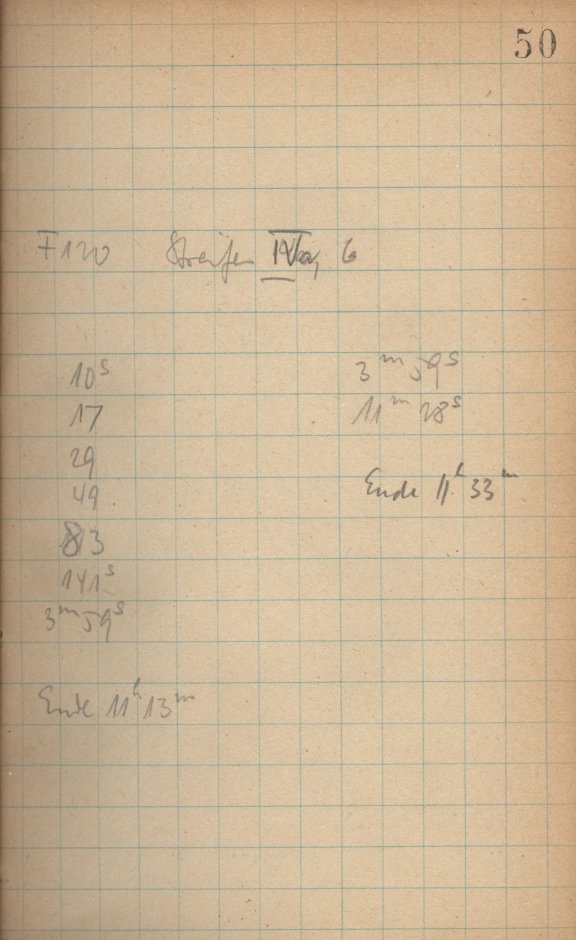 50
F120 Streifen IVa, 6
10ˢ
17
29
49
83
141ˢ
3ᵐ 59ˢ
Ende 11ʰ 13ᵐ
3ᵐ 59ˢ
11ᵐ 28ˢ
Ende 11ʰ 33ᵐ